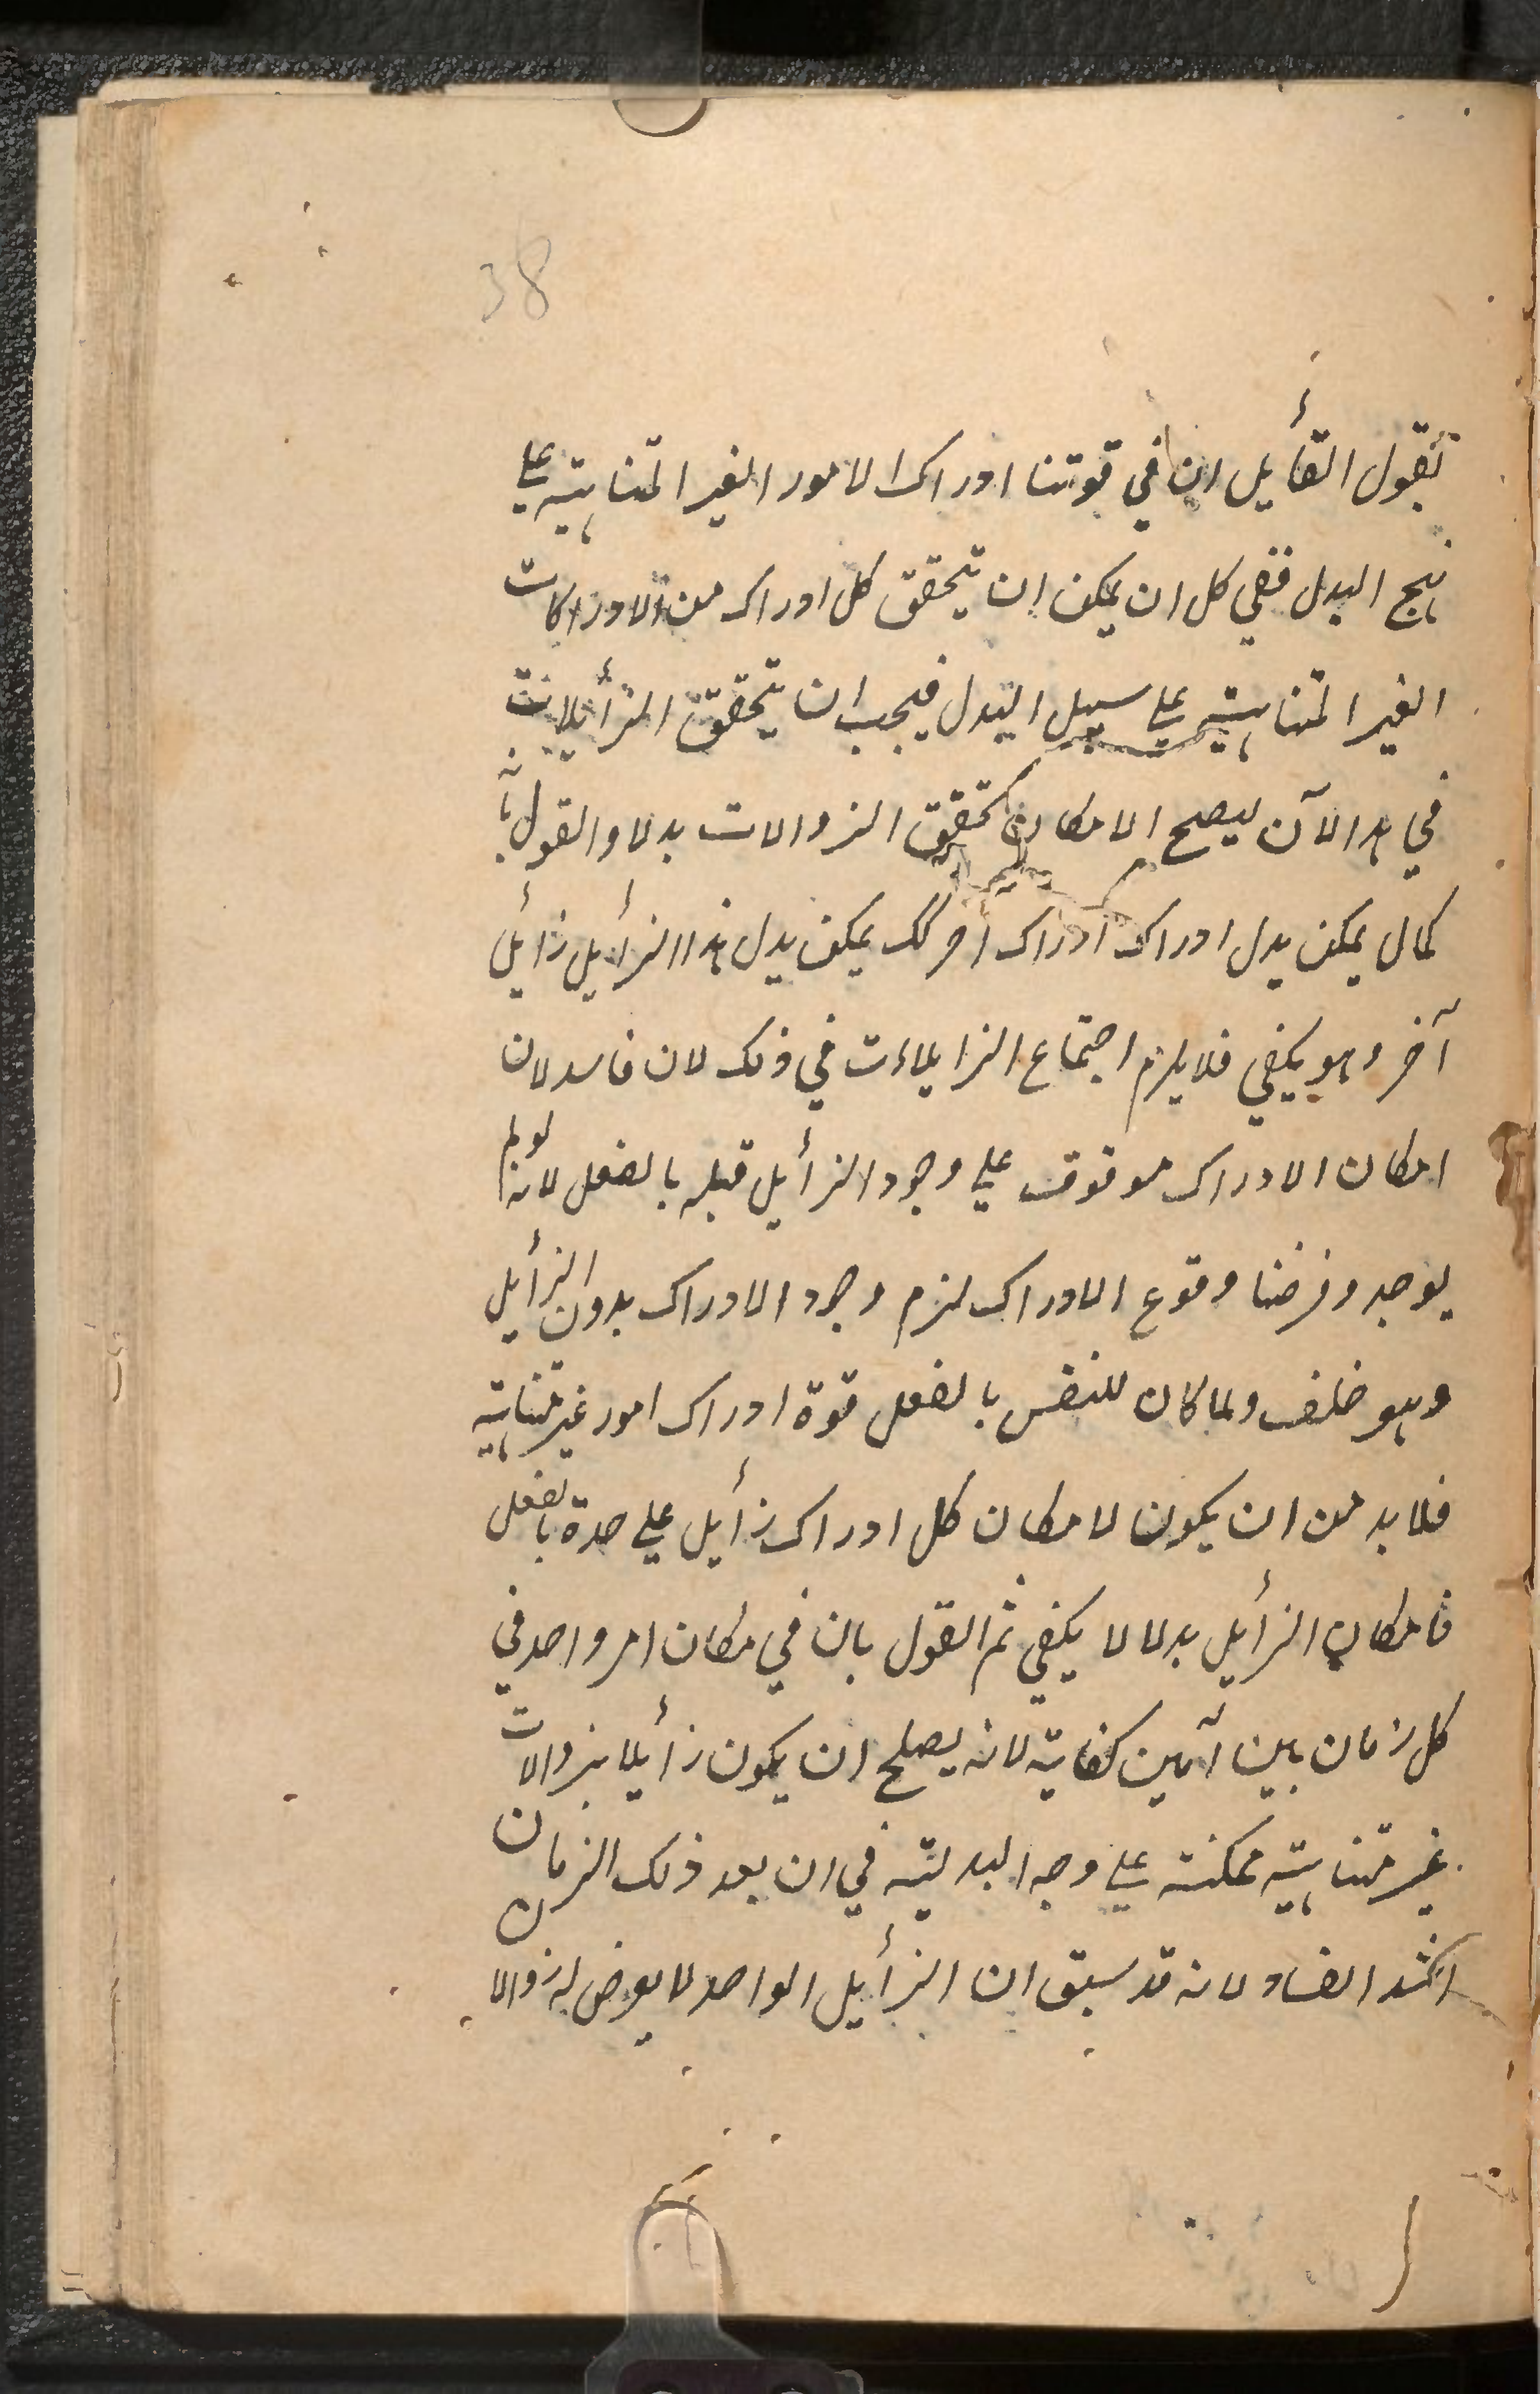 38
نقول القأيل ان في قوتنا ادراك الامور الغير المتناهية على
نهج البدل ففي كل ان يمكن ان يتحقق كل ادراك من الادراكات
الغير المتناهية على سبيل البدل فيجب ان يتحقق الزأيلات
في هذا الآن ليصح الامكان تحقق الزوالات بدلا والقول بأنه
كمال يمكن بدل ادراك ادراك آخر كك يمكن بدل هذا الزأيل زأيل
آخر وهو يكفي فلا يلزم اجتماع الزايلات في ذلك لان فاسد لان
امكان الادراك موقوف على وجود الزأيل قبله بالفعل لانه لو لم
يوجد وفرضنا وقوع الادراك لزم وجود الادراك بدون الزأيل
وهو خلف ولما كان للنفس بالفعل قوة ادراك امور غير متناهية
فلا بد من ان يكون لامكان كل ادراك زأيل على حدة بالفعل
فامكان الزأيل بدلا لا يكفي ثم القول بان في مكان امر واحد في
كل زمان بين آنين كفاية لانه يصلح ان يكون زأيلا بزوالات
غير متناهية ممكنة على وجه البدلية في ان بعد ذلك الزمان
الفساد لانه قد سبق ان الزأيل الواحد لا يعرض له زوالا